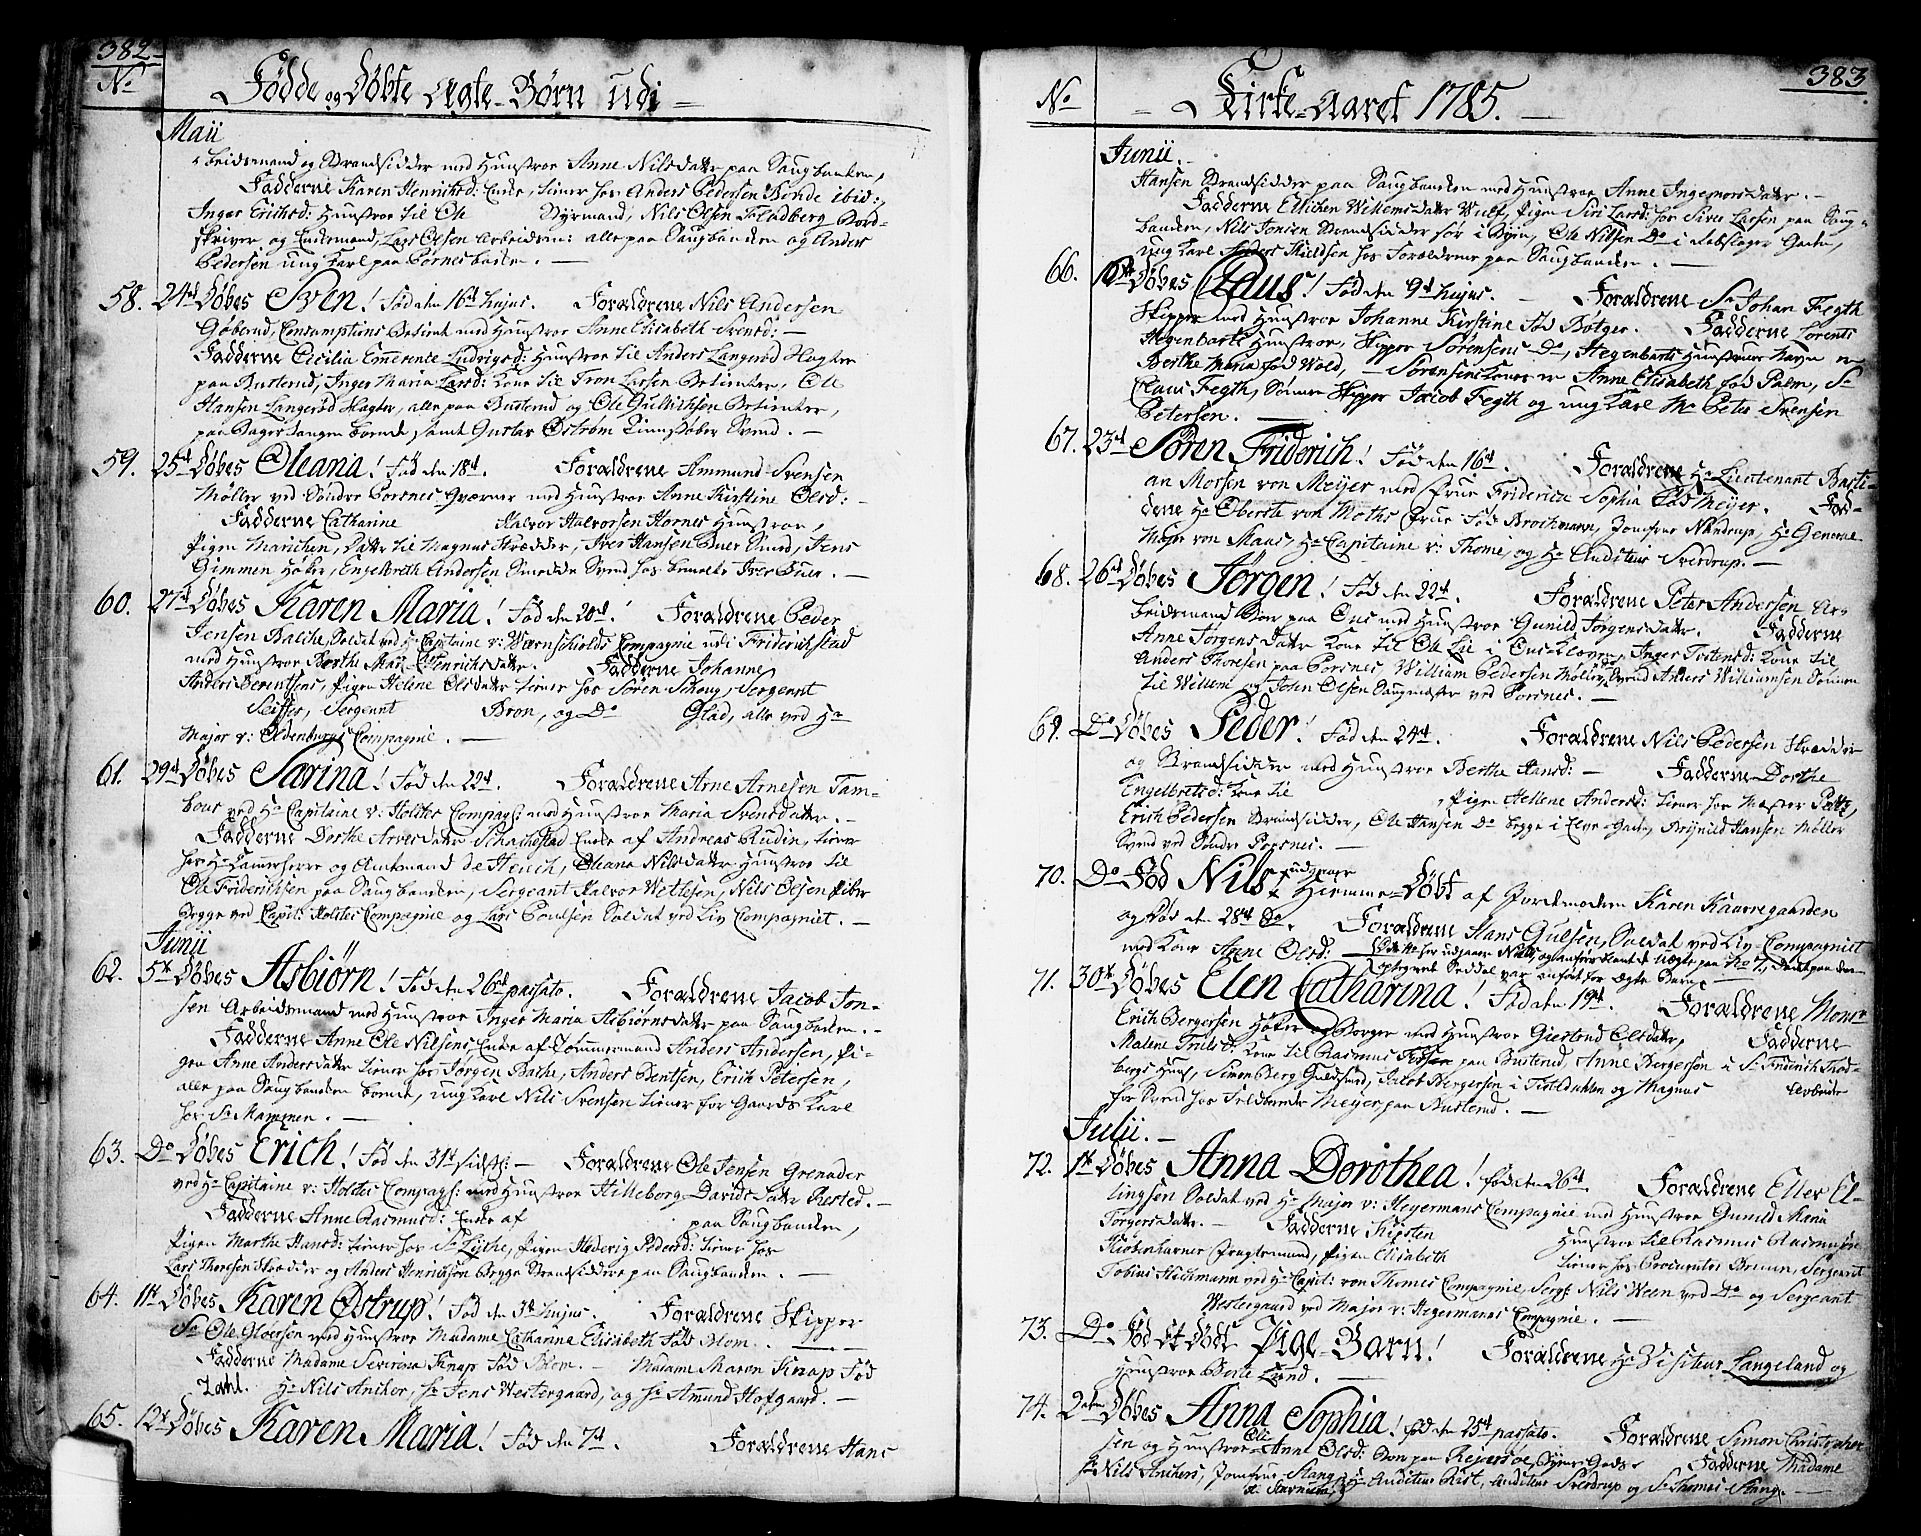 382
No
Fødde og Døbte Ægte-Børn udi
Maii
beidsmand og Strandsidder med Hustroe Anne Nilsdatr paa Saugbanken,
Fadderne Karen Henrichsd: Enke, tiener hos Anders Pedersen Bonde ibid:,
Inger Erichsd: Hustroe til Ole Styrmand, Nils Olsen Fladberg Bord-
skriver og Enkemand, Lars Olsen Arbeidsm: alle paa Saugbanken og Anders
Pedersen ung Karl paa Porsnes
58. 24de Døbes Sven! Fød den 16d hujus. Forældrene Nils Andersen
Consumptions Betient med Hustroe Anne Elisabeth Svensd: –
Fadderne Cecilia Emerence Ludvigsd: Hustroe til Anders Langerød Vagter
paa Busterud, Inger Maria Larsd: Kone til Tron Larsen Betienter, Ole
Hansen Langerød Vagter, alle paa Busterud og Ole Gullichsen Betienter,
paa boende samt Gustav Østrøm Svend. –
59. 25d Døbes Oleana! Fød den 18d. Forældrene Ammund Svensen
Møller ved Søndre Porsnes Qværner med Hustroe Anne Kirstine Olsd: –
Fadderne Catharine Halvor Halvorsen Hornes Hustroe,
Pigen Marichen, Datr til Magnus Skrædder, Iver Hansen Buer Smed, Jens
Gimmen Høker, Engelbreth Andersen Smedde Svend hos bemelte Iver Buer. –
60. 27d Døbes Karen Maria! Fød den 20d! Forældrene Peder
Jensen Balche, Soldat ved Hr Capitaine v: Wærnschiolds Compagnie udi Friderichstad
med Hustroe Berthe Maria Henrichsdatr. Fadderne Johanne
Anders Berentsens, Pigen Helene Olsdatr tiener hos Søren Sergeant
Seisser, Sergeant Bron, og Do Glad, alle ved Hr
Major v: Oldenburgs Compagnie. –
61. 29d Døbes Sarina! Fød den 22d. Forældrene Arne Arnesen Tam-
bour ved Hr Capitaine v: Holstes Compagn: med Hustroe Maria Svensdatr. –
Fadderne Dorthe Arvesdatr Schachestad Enke af Andreas Rudin, tiener
hos Hr Kammerherre og Amtmand de Hench, Oleana Nilsdatr Hustroe til
Ole Friderichsen paa Saugbanken, Sergeant Halvor Wethesen, Nils Olsen Piber
begge ved Capit: Holstes Compagnie og Lars Poulsen Soldat ved Liv Compagniet. –
Junii
62. 5te Døbes Asbiørn! Fød den 26d passato. Forældrene Jacob Jon-
sen Arbeidsmand med Hustroe Inger Maria Asbiørnsdatr paa Saugbanken. –
Fadderne Anne Ole Nilsens, Enke af Tømmermand Anders Andersen, Pi-
gen Anne Andersdatr tiener hos Jørgen Bathe, Anders Bentsen, Erich Petersen,
alle paa Saugbanken boende, ung Karl Nils Svensen tiener for Gaards Karl
hos Sr Mammen. –
63. Do Døbes Erich! Fød den 31te sidstl: – Forældrene Ole Jensen Grenader
ved Hr Capitaine v: Holstes Compagn: med Hustroe Hilleborg Davids datr Rested. –
Fadderne Anne Rasmusd: Enke af paa Saugbanken,
Pigen Marthe Hansd: tiener hos Sr Lythe, Pigen Hedevig Pedersd: tiener hos
Lars Thoresen Skrædder og Anders Henrichsen Brygge Strandsiddere paa Saugbanken. –
64. 11te Døbes Karen Østrup! Fød den 3te hujus. Forældrene Skipper
Sr Ole Gloersen med Hustroe Madame Catharine Elisabeth Fød Blom. –
Fadderne Madame Severina Knap Fød Blom. – Madame Maren Knap Fød
Zahl. Hr Nils Ancher, Sr Jens Westergaard, og Sr Amund Hofgaard. –
65. 12te Døbes Karen Maria! Fød den 7d. Forældrene Hans
383
No
Kirke-Aaret 1785. –
Junii. –
Hansen Strandsidder paa Saugbanken med Hustroe Anne Ingemorsdatr. –
Fadderne Ellichen Willemsdatr Wulf, Pigen Siri Larsd: hos Siver Larsen paa Saug-
banken, Nils Jonsen Strandsidder før i Byen, Ole Nilsen Do i Rebslager Gaden,
ung Karl Anders Kieldsen hos Forældrene paa Saugbanken. –
66. Døbes Claus! Fød den 9d hujus. – Forældrene Sr Johan Fegth
Skipper med Hustroe Johanne Kirstine Fød Bøtger. Fadderne Lorents
Hegenbarts Hustroe, Skipper Sørensens Do, Hegenbarts Hustrues Navn er
Berthe Maria fød Wold, – Sørensens Kones er Anne Elisabeth fød Palm, Sr
Claus Fegth, Sønnen Skipper Jacob Fegth og ung Karl Mr Peter Svensen
Petersen. –
67. 23d Søren Friderich! Fød den 16d. Forældrene Hr Lieutenant Basti-
an Morsen von Meyer med Frue Friderica Sophia Fød Meyer. Fad-
derne Hr Oberste von Moths Frue Fød Brochmann, Jomfrue Nandrup, Hr General-
Major von Maas, Hr Capitaine v: Thome, og Hr Auditeur Sverdrup. –
68. 26d Døbes Jørgen! Fød den 22d. Forældrene Peter Andersen Ar-
beidsmand Boer paa Ous med Hustroe Gunild Jørgensdatr. Fadderne
Anne Jørgens datr Kone til Ole Lie i Ouskloven, Inger Tostensd: Kone til
Anders Thoresen paa Porsnes, William Pedersen Møller Svend, Anders Williamsen Sønnen
til Willem og John Olsen Saugmester ved Porsnes. –
69. Do Døbes Peder! Fød den 24d. Forældrene Nils Pedersen Skrædder
og Strandsidder med Hustroe Berthe Hansd: – Fadderne Dorthe
Engelbretsd: Kone til , Pigen Hellene Andersd: tiener hos Mester Peltz,
Erich Pedersen Strandsidder, Ole Hansen Do begge i Elve Gaden, Brynild Hansen Møller
Svend ved Søndre Porsnes. –
70. Do Fød Nils! Hiemme-Døbt af Jordemoderen Karen Kaavregaarden
og Død den 28d Do Forældrene Hans Gulsen, Soldat ved Liv-Compagniet
med Kone Anne Olsd: –
71. 30te Døbes Elen Catharina! Fød den 19d. Forældrene Monsr
Erich Bergersen Høker og Borger med Hustroe Giertrud Olsdatr, Fadderne
Malene Troelsd: Kone til Rasmus paa Busterud, Anne Bergersen i Sr Friderich Thod-
bergs Huus, Simon Berg Guldsmed, Jacob Bergersen i Tistedahlen og Magnus Arbeids-
for Svend hos Feldbereder Meyer paa Busterud. –
Julii. –
72. 1te Døbes Anna Dorothea! Fød den 26d Forældrene Eller El-
lingsen Soldat ved Hr Major v: Hegermans Compagnie med Hustroe Gunild Maria
Torgersdatr. – Fadderne Kirsten Hustroe til Rasmus Rasmusen
Kiøbenhavner Fragtemand, Pigen Elisabeth tiener hos Procurator Bruun, Sergeant
Tobias Hichmann ved Hr Capit: von Thomes Compagnie, Serg: Nils Ween ved Do og Sergeant
Westergaard ved Major v: Hegermans Compagnie. –
73. Do Fød Et Dødt Pige-Barn! Forældrene Hr Visiteur Langeland og
Hustroe Lund. –
74. 2den Døbes Anna Sophia! Fød den 25d passato. Forældrene Simon Christopher-
sen og Hustroe Anne Olsd: Boer paa Fadderne Madame
Sr Nils Anchers, Jomfrue Stang, Hr Auditeur Rist, Auditeur Sverdrup og Sr Thomas Stang. –